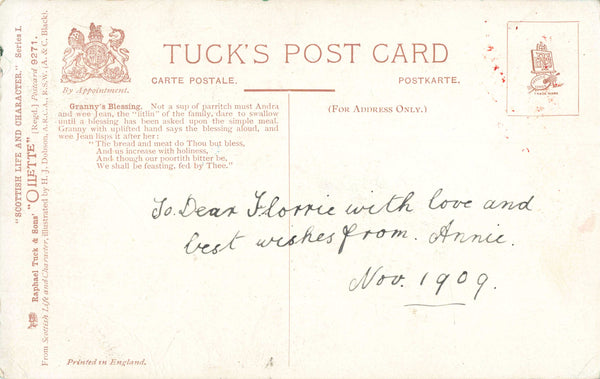 "SCOTTISH LIFE AND CHARACTER." Series I.
Raphael Tuck & Sons' "OILETTE" [Regd.] Postcard 9271.
From Scottish Life and Character, illustrated by H. J. Dobson, A.R.C.A., R.S.W. (A. & C. Black).
By Appointment.
TUCK'S POST CARD
CARTE POSTALE.
POSTKARTE.
(FOR ADDRESS ONLY.)
Granny's Blessing. Not a sup of parritch must Andra
and wee Jean, the "titlin" of the family, dare to swallow
until a blessing has been asked upon the simple meal.
Granny with uplifted hand says the blessing aloud, and
wee Jean lisps it after her:
"The bread and meat do Thou but bless,
And us increase with holiness,
And though our poortith bitter be,
We shall be feasting, fed by Thee."
TRADE MARK
To. Dear Florrie with love and
best wishes from. Annie.
Nov. 1909.
Printed in England.